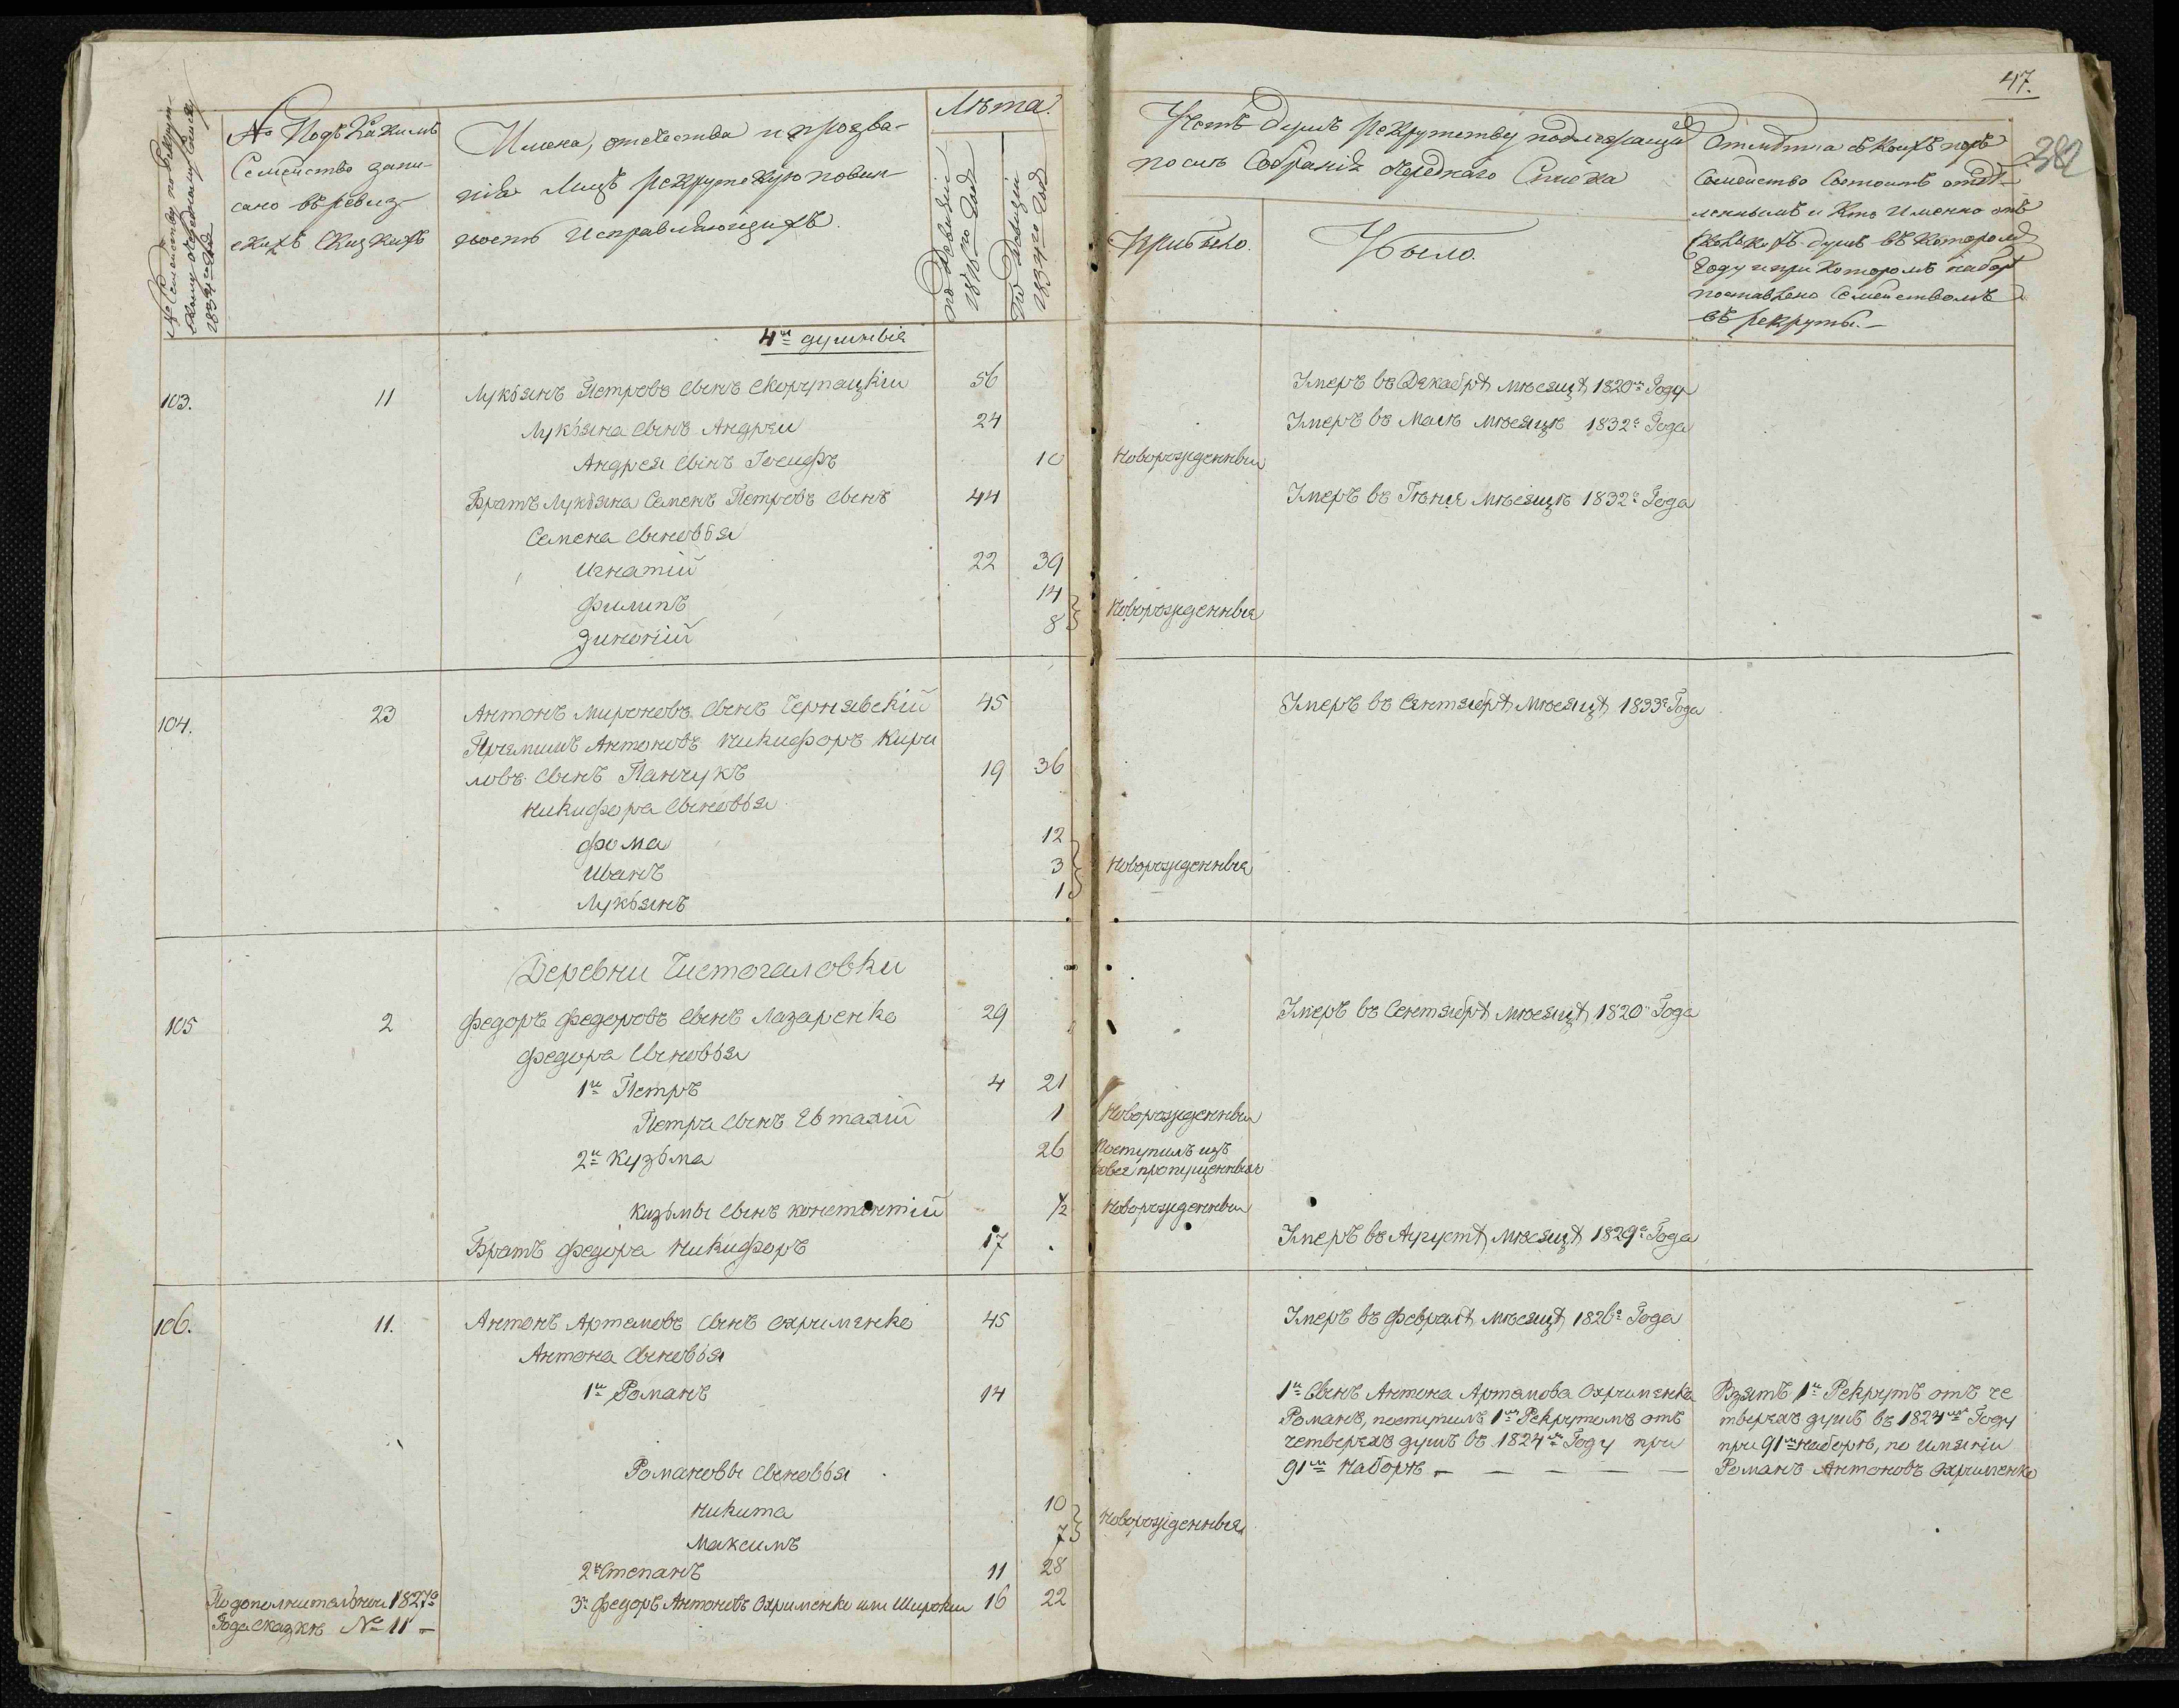 47.
382
№ Семейству по Рекрут-
скому очередному списку
1834 года
№ Подъ Какимъ
Семейство запи-
сано въ ревиз-
скихъ Сказкахъ
Имена, отечества и прозва-
нія Лицъ Рекрутскую повин-
ность Исправляющихъ.
Лѣта.
по Ревизіи
1816 го Года
По Ревизіи
1834 го Года
Счетъ душъ Рекрутству подлежащихъ
по силѣ Собранія Очереднаго Списка
Прибыло.
Убыло.
Отмѣтка съ коихъ поръ
Семейство Состоитъ отдѣ-
леннымъ и Кто Именно отъ
сколькихъ душъ въ которомъ
Году и при Которомъ наборѣ
поставлено Семействомъ
въ рекруты.-
4хъ душныя
103.
11
Лукьянъ Петровъ сынъ Скорупацкій
56
Умеръ въ Декабрѣ мѣсяцѣ 1820мъ Году
Лукьяна сынъ Андрей
24
Умеръ въ Маѣ мѣсяцѣ 1832го Года
Андрея сынъ Іосифъ
10
Новорожденный
Братъ Лукьяна Семенъ Петровъ сынъ
44
Умеръ въ Іюнѣ мѣсяцѣ 1832го Года
Семена сыновья
Игнатій
22 39
Филипъ
14
Зиновій
8
Новорожденныя
104.
23
Антонъ Мироновъ сынъ Чернявскій
45
Умеръ въ Сентябрѣ мѣсяцѣ 1833го Года
Пріемышъ Антоновъ Никифоръ Кири
ловъ сынъ Панчукъ
19 36
Никифора сыновья
Фома
12
Иванъ
3
Новорожденныя
Лукьянъ
1
Деревни Чистогаловки
105
2
Федоръ Федоровъ сынъ Лазаренко
29
Умеръ въ Сентябрѣ мѣсяцѣ 1820го Года
Федора сыновья
1й Петръ
4 21
Петра сынъ Евтахій
1
Новорожденный
2й Кузьма
26
Поступилъ изъ
вовсе пропущенныхъ
Кузьмы сынъ Константій
1/2
Новорожденный
Братъ Федора Никифоръ
17
Умеръ въ Августѣ мѣсяцѣ 1829го Года
106.
11.
Антонъ Артемовъ сынъ Охрименко
45
Умеръ въ Февралѣ мѣсяцѣ 1826го Года
Антона сыновья
1й Романъ
14
1й Сынъ Антона Артемова Охрименка
Романъ, поступилъ 1мъ Рекрутомъ отъ
четверехъ душъ въ 1824мъ Году при
91мъ Наборѣ -
Взятъ 1й Рекрутъ отъ че
тверехъ душъ въ 1824мъ Году
при 91мъ наборѣ, по имянѣи
Романъ Антоновъ Охрименко
Романовы сыновья
Никита
10
Максимъ
7
Новорожденныя
2й Степанъ
11 28
По дополнительной 1827го
Года сказкѣ № 11 -
3й Федоръ Антоновъ Охрименко или Широкій
16 22